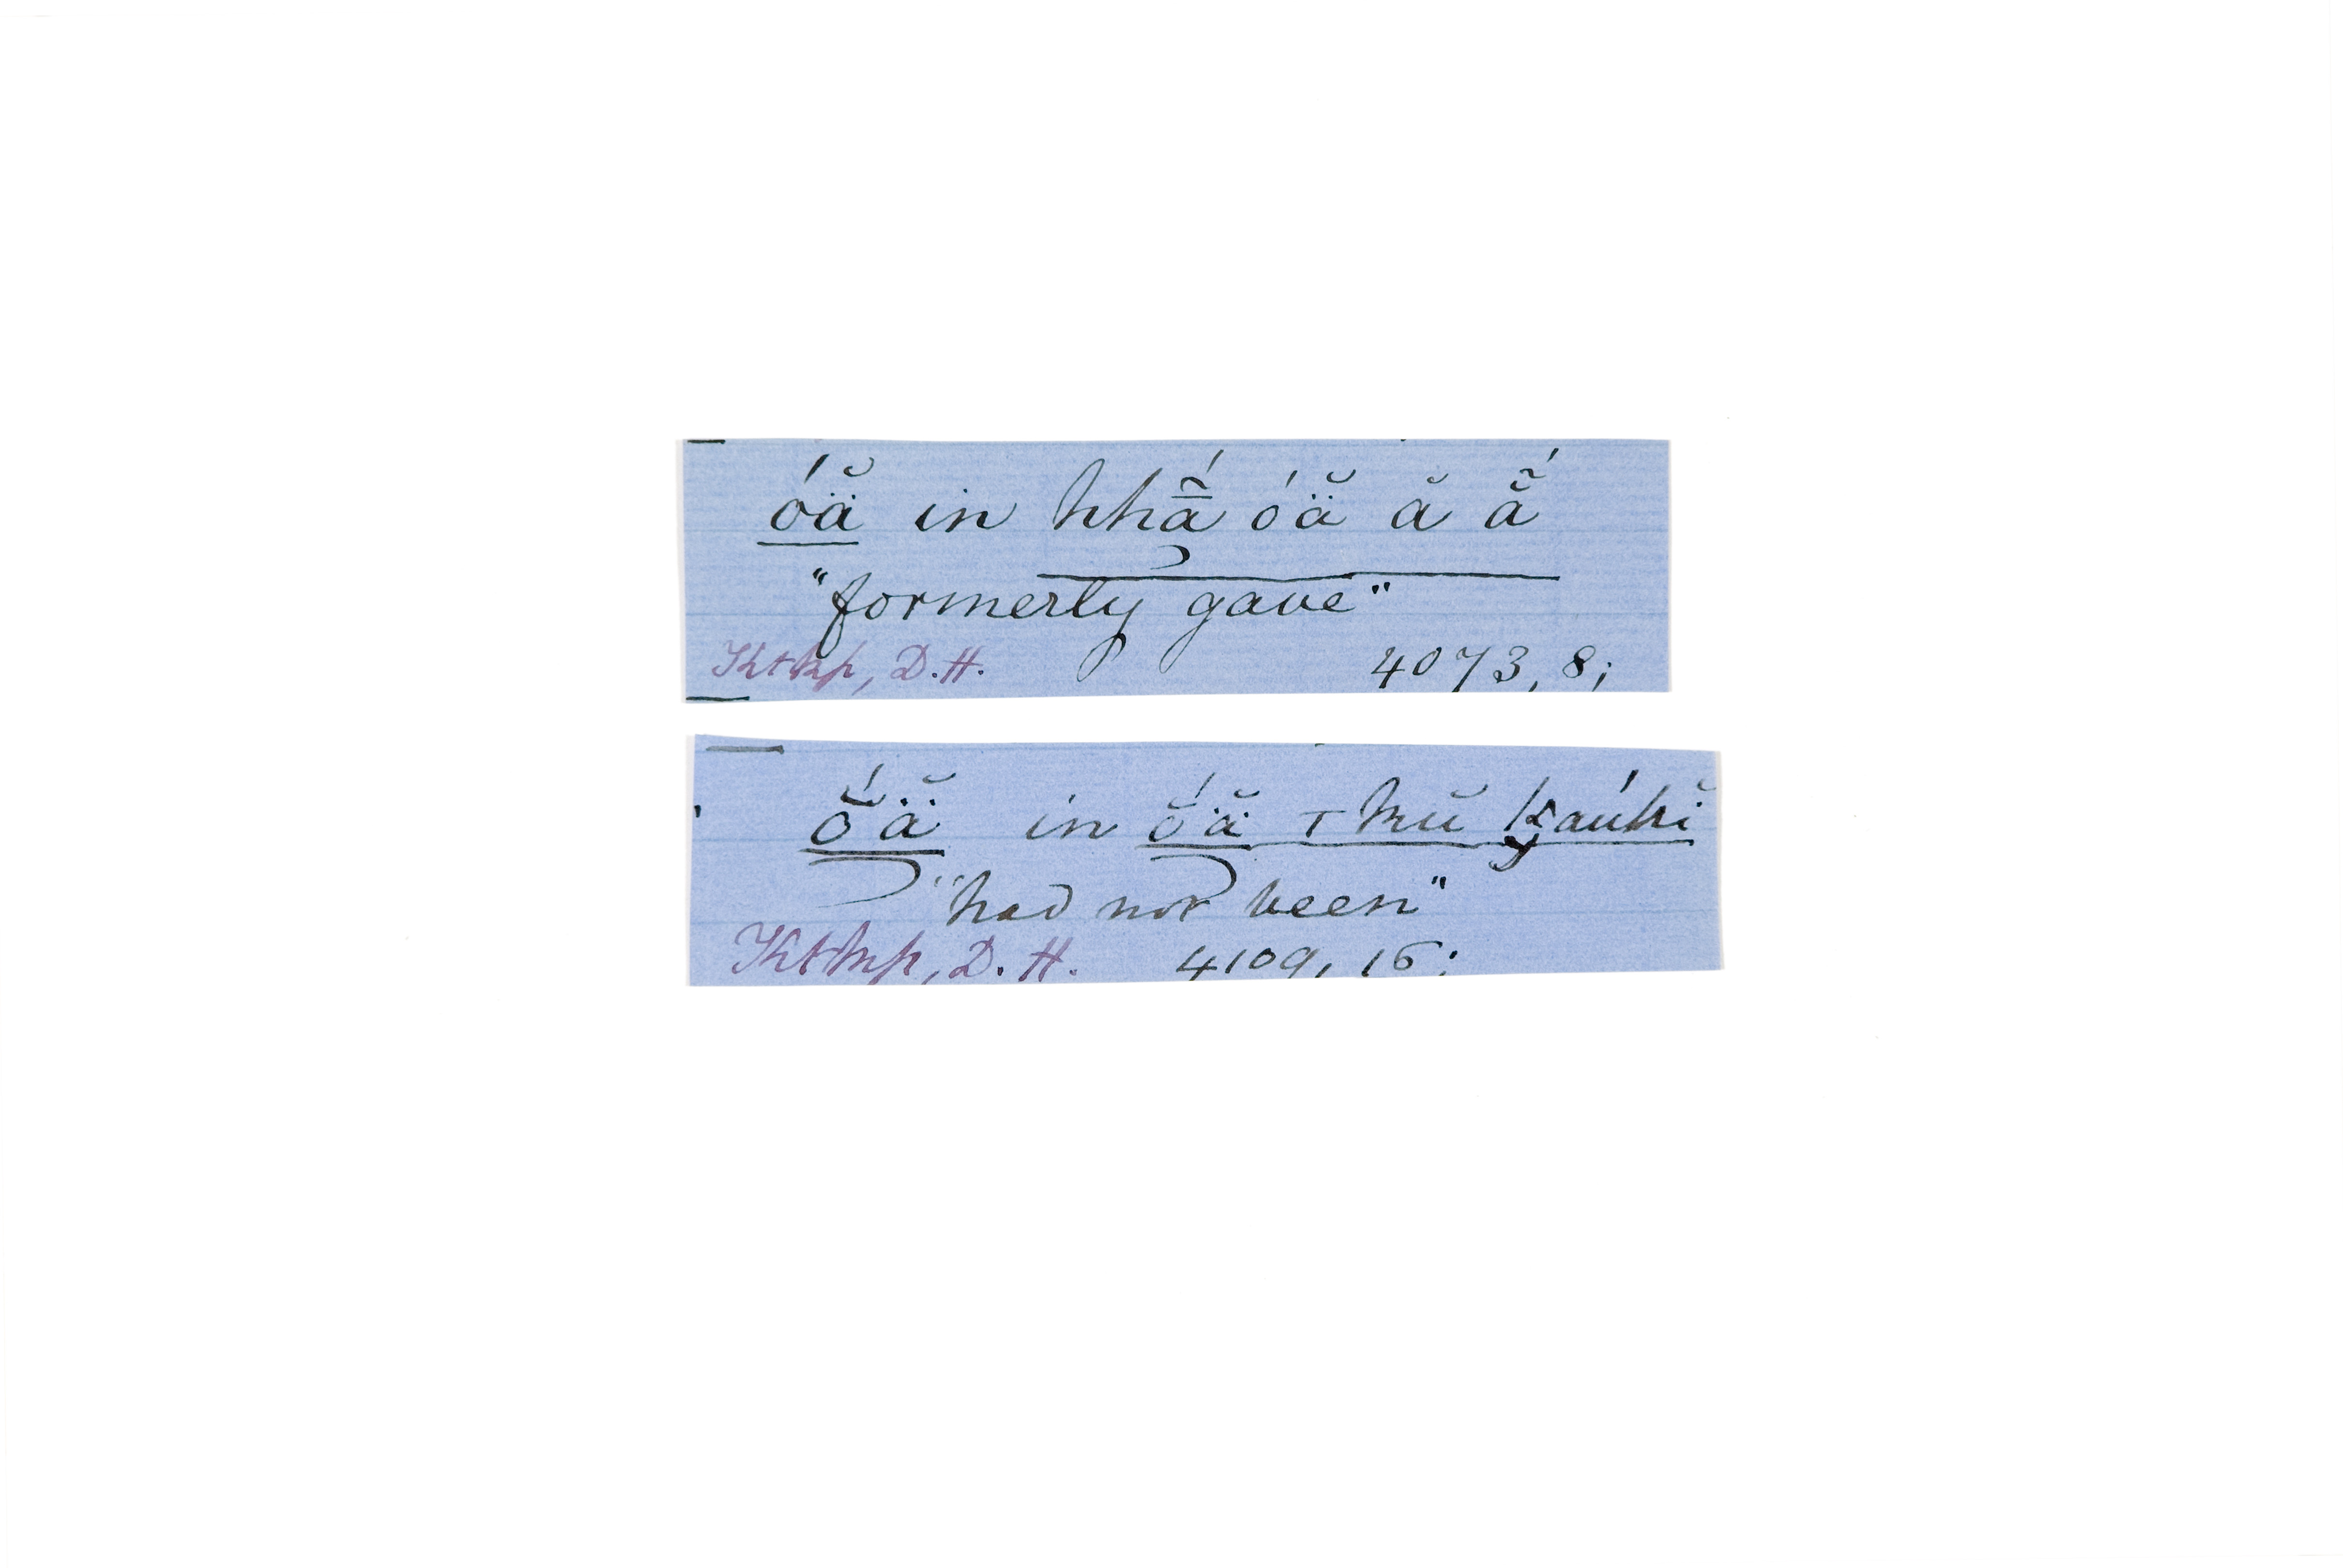 óä̆ in hhā̂́ óä̆ ă ẵ́
"formerly gave"
Kktkp, D.H. 4073, 8;
ŏ́ä̆ in ŏ́ä̆ ꞇhŭ kaúkĭ
"had not been"
Kktkp, D.H. 4109, 15;